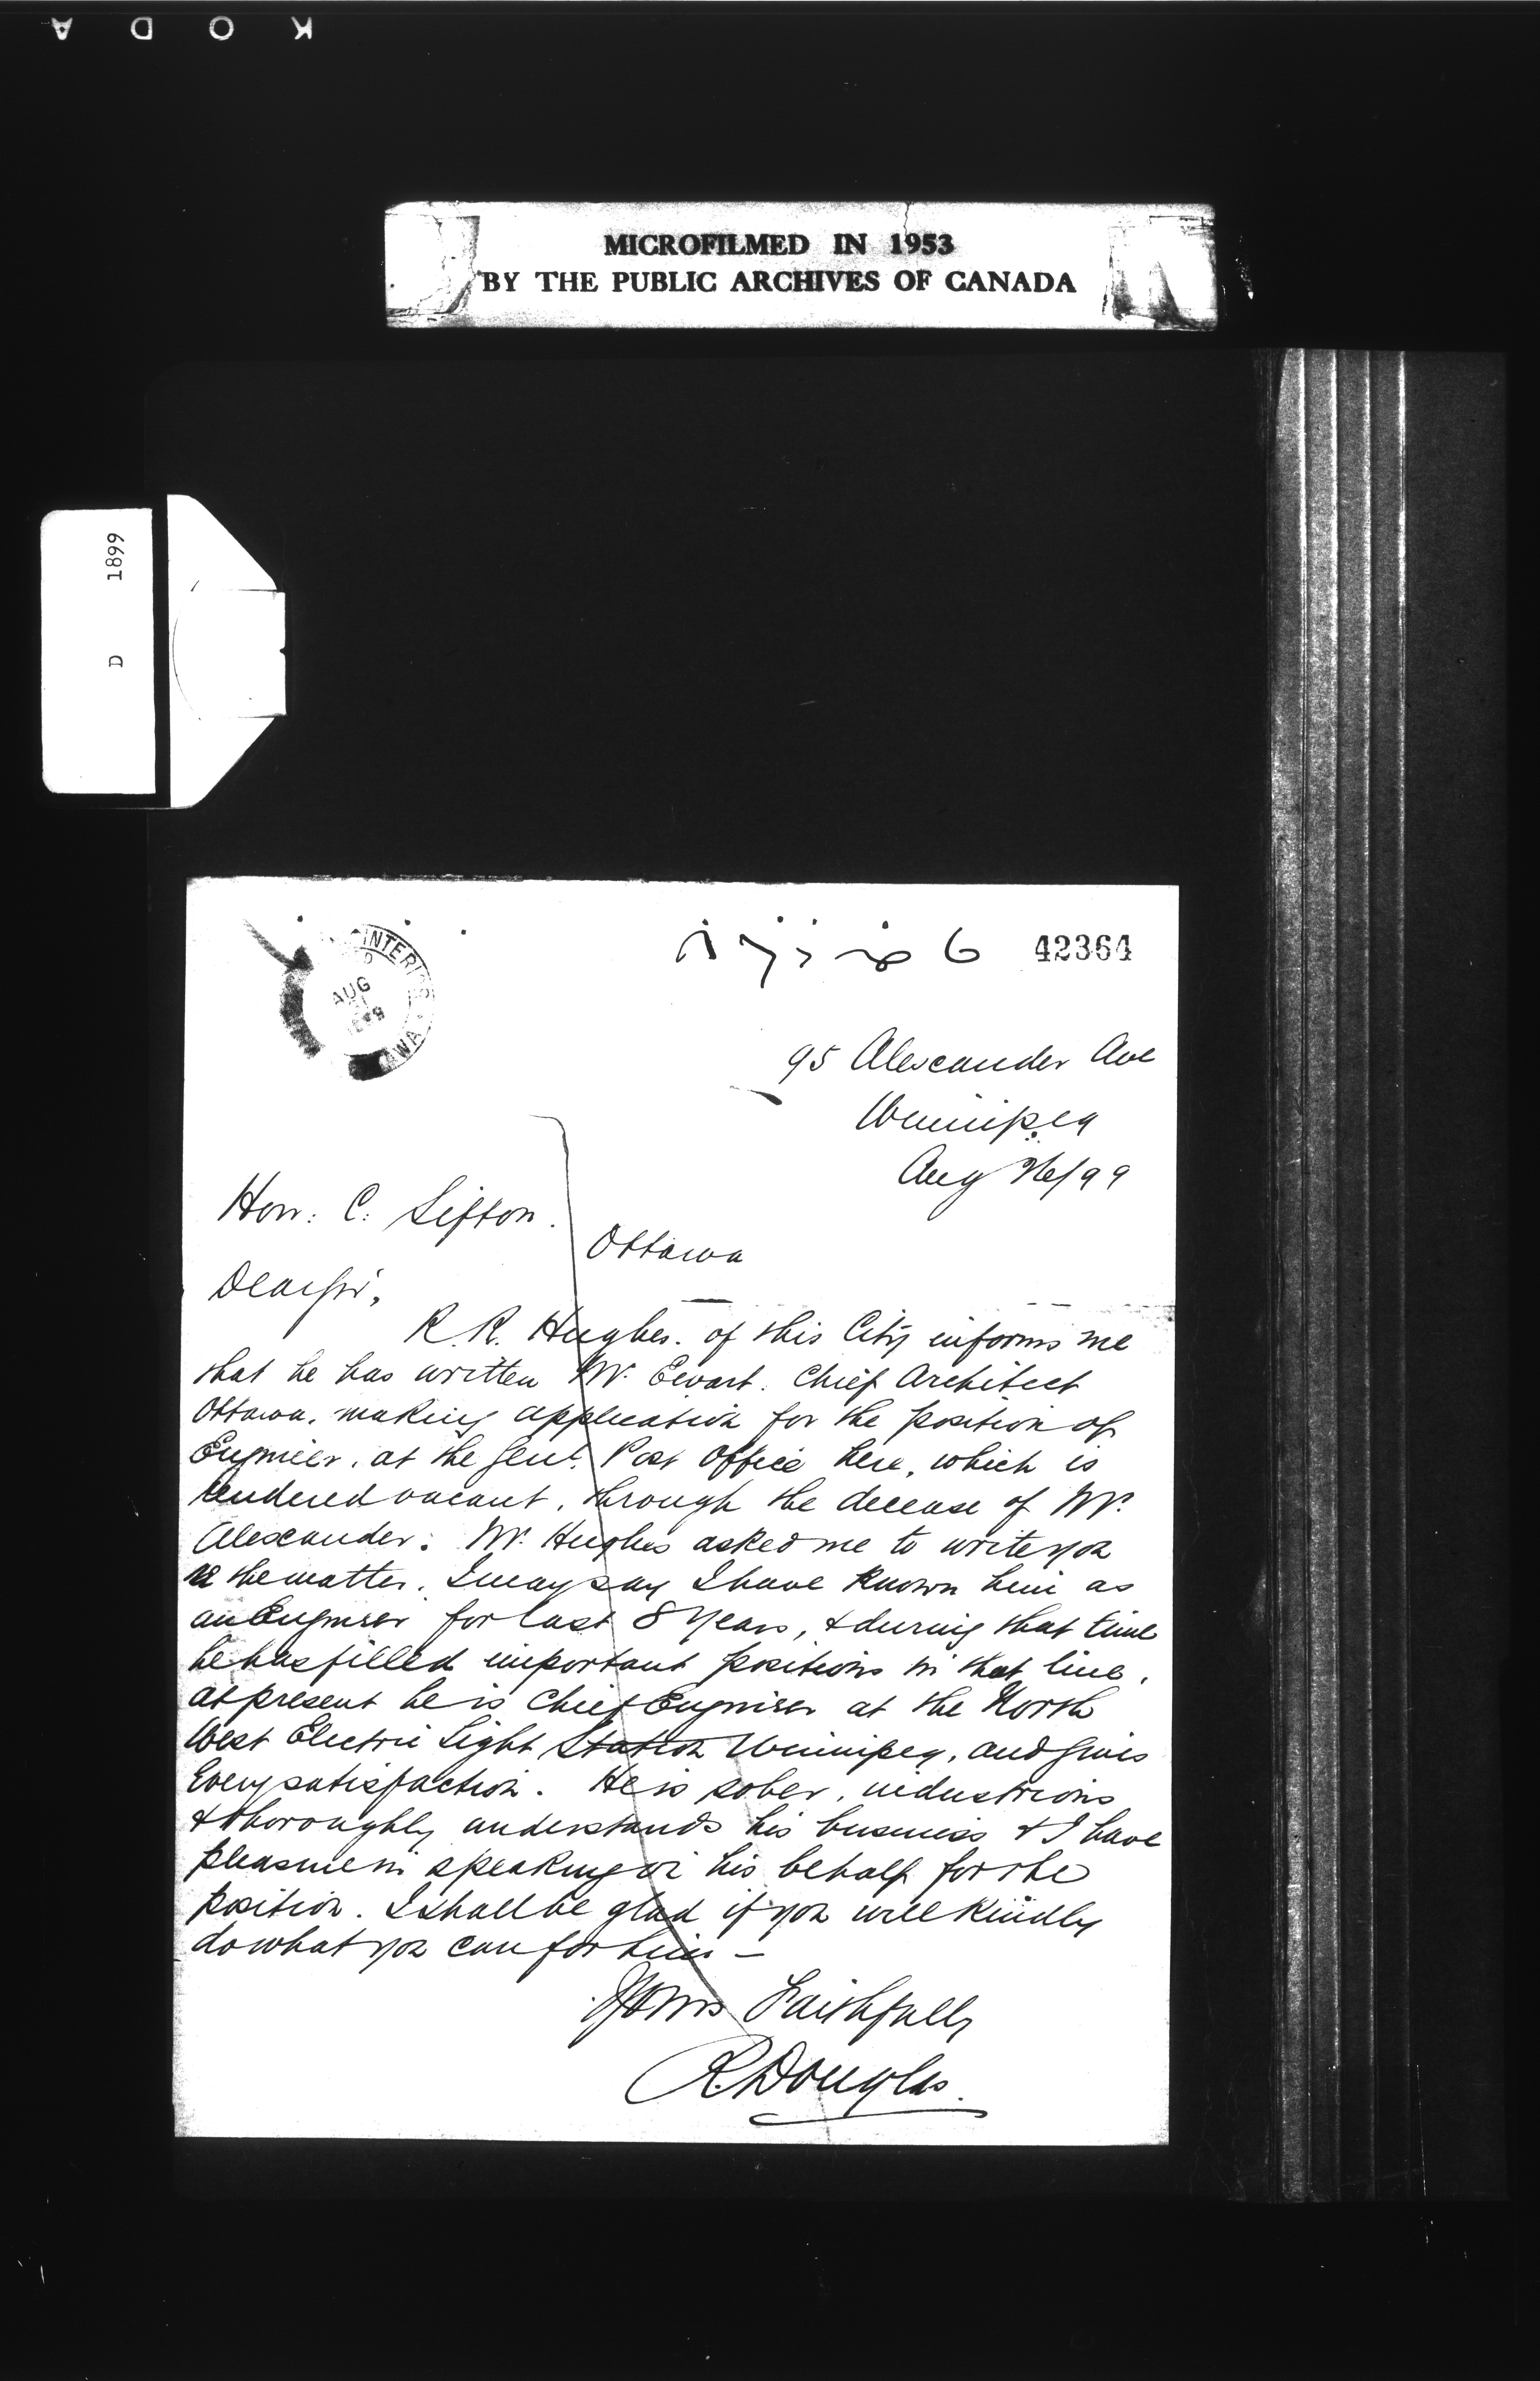 K O D A
MICROFILMED IN 1953
BY THE PUBLIC ARCHIVES OF CANADA
D 1899
INTERI
AUG
AWA
42364
95 Alexander Ave
Winnipeg
Aug 26/99
Hon: C: Sifton.
Ottawa
Dear Sir,
R. R. Hughes. of this City informs me
that he has written Mr. Ewart. Chief Architect
Ottawa, making application for the position of
Engineer, at the Genl. Post Office here, which is
rendered vacant, through the decease of Mr.
Alexander. Mr. Hughes asked me to write you
re the matter. I may say I have known him as
an Engineer for last 8 years, & during that time
he has filled important positions in that line,
at present he is Chief Engineer at the North
West Electric Light Station Winnipeg, and gives
Every satisfaction. He is sober, industrious
& thoroughly understands his business & I have
pleasure in speaking on his behalf for the
position. I shall be glad if you will kindly
do what you can for him —
Yours Faithfully
R. Douglas.